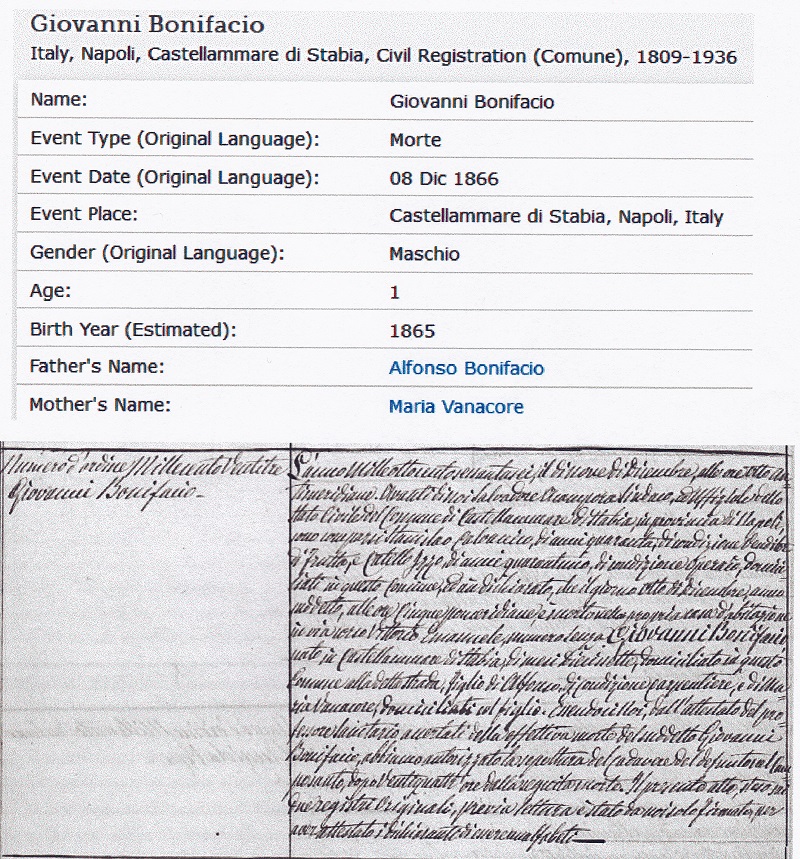 Giovanni Bonifacio
Italy, Napoli, Castellammare di Stabia, Civil Registration (Comune), 1809-1936
Name: Giovanni Bonifacio
Event Type (Original Language): Morte
Event Date (Original Language): 08 Dic 1866
Event Place: Castellammare di Stabia, Napoli, Italy
Gender (Original Language): Maschio
Age: 1
Birth Year (Estimated): 1865
Father's Name: Alfonso Bonifacio
Mother's Name: Maria Vanacore
Numero d'ordine Millecento Ventitre
Giovanni Bonifacio
L'anno Milleottocentosessantasei, il dì nove di Dicembre, alle ore otto an-
timeridiane. Avanti di noi Sindaco, ed Uffiziale dello
Stato Civile del Comune di Castellammare di Stabia, in provincia di Napoli,
sono comparsi Stanislao di anni quaranta, di condizione Venditore
di frutta, e Catello Izzo di anni quarantuno, di condizione Operaio, domici-
liati in questo Comune, ed àn dichiarato, che il giorno otto di Dicembre, anno
suddetto, alle ore Cinque pomeridiane, è morto nella propria casa di abitazione
in via corso Vittorio Emanuele, numero senza Giovanni Bonifacio
nato in Castellammare di Stabia, di mesi diciotto, domiciliato in questo
Comune alla detta strada, figlio di Alfonso, di condizione carpentiere, e di Ma-
ria Vanacore, domiciliati col figlio. Essendoci noi, dall'attestato del pro-
fessore Sanitario accertati della effettiva morte del suddetto Giovanni
Bonifacio, abbiamo autorizzato la sepoltura del Cadavere del defunto nel Cam-
posanto, dopo Ventiquattr'ore dalla seguita morte. Il presente atto,
registri Originali, previa lettura è stato da noi solo firmato, per
aver attestato i dichiaranti di essere analfabeti